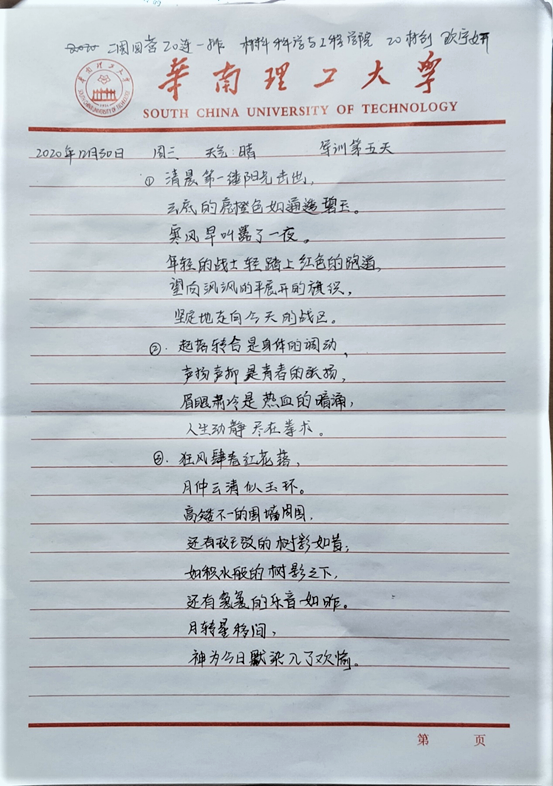 二团四营20连一排 材料科学与工程学院 20材创 欧宇妍
華南理工大學
SOUTH CHINA UNIVERSITY OF TECHNOLOGY
2020年12月30日 周三 天气:晴 军训第五天
① 清晨第一缕阳光击出,
云底的底橙色如逼透碧玉。
寒风早叫嚣了一夜。
年轻的战士轻踏上红色的跑道,
望向飒飒的平展开的旗帜,
坚定地走向今天的战区。
②. 起落转合是身体的调动,
声扬声抑是青春的张扬,
眉眼肃冷是热血的暗涌,
人生动静尽在拳术。
③. 狂风肆卷红花落,
月伴云清似玉环。
高矮不一的围墙周围,
还有斑驳的树影如昔;
如积水般的树影之下,
还有袅袅的乐音如昨。
月转星移间,
神为今日默添几了欢愉。
第 页